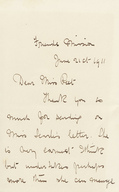 Friends Mission
June 21st 1911
Dear Miss Peet
Thank you so
much for sending on
Miss letter. She
is very earnest I think
but undertakes perhaps
more than she can manage